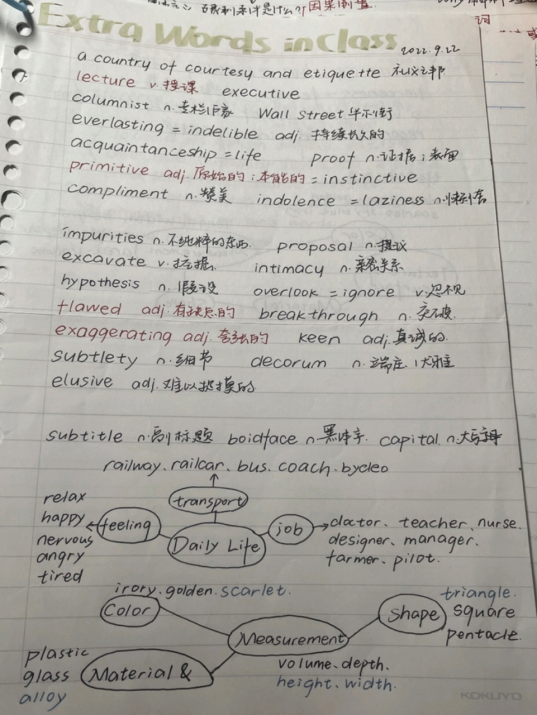 因果倒置
词
Extra Words in Class 2022.9.22
a country of courtesy and etiquette 礼仪之邦
lecture v.授课 executive
columnist n.专栏作家 Wall Street 华尔街
everlasting = indelible adj 持续恒久的
acquaintanceship = life proof n.证据;
primitive adj.原始的;本能的 = instinctive
compliment n.赞美 indolence = laziness n.懒惰
impurities n.不纯粹的东西 proposal n.提议
excavate v.挖掘 intimacy n.亲密关系
hypothesis n.假设 overlook = ignore v.忽视
flawed adj.有缺点的 breakthrough n.突破
exaggerating adj.夸张的 keen adj.真诚的.
subtlety n.细节 decorum n.端庄
elusive adj.难以捉摸的
subtitle n.副标题 boldface n.黑体字 capital n.大写
railway.railcar.bus.coach.bycleo
relax
transport
happy feeling job doctor. teacher. nurse.
nervous Daily Life designer. manager.
angry farmer. pilot.
tired
irory.golden.scarlet. triangle.
Color Shape square
pentacle.
Measurement
plastic volume.depth.
glass Material &
alloy height.width.
KOKUYO